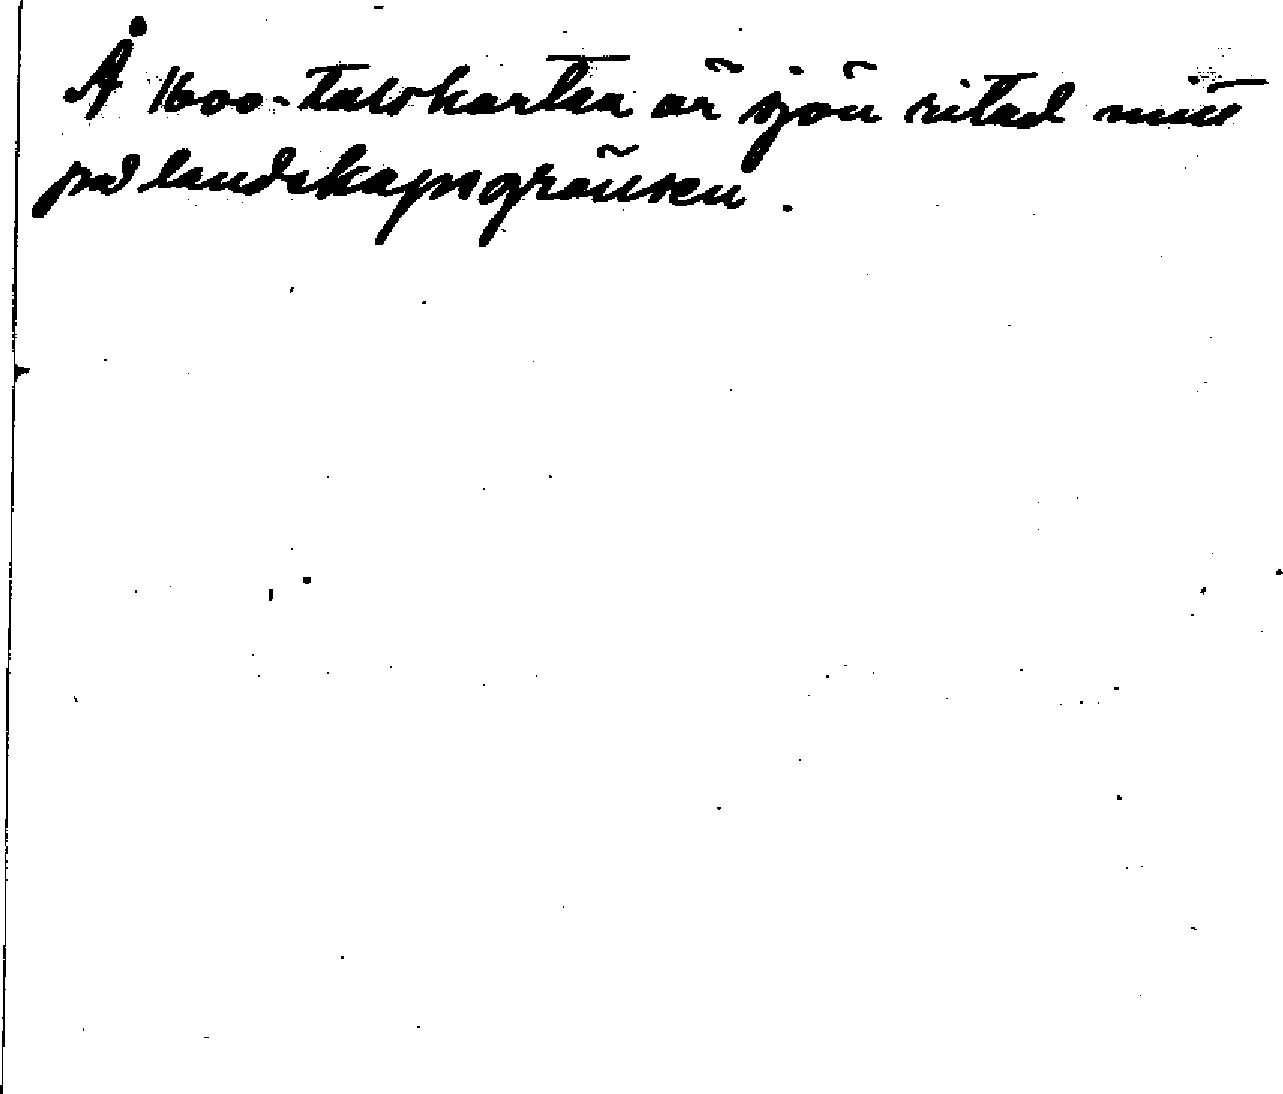 Å 1600-talskartan är sjön ritad mitt
på landskapsgränsen.